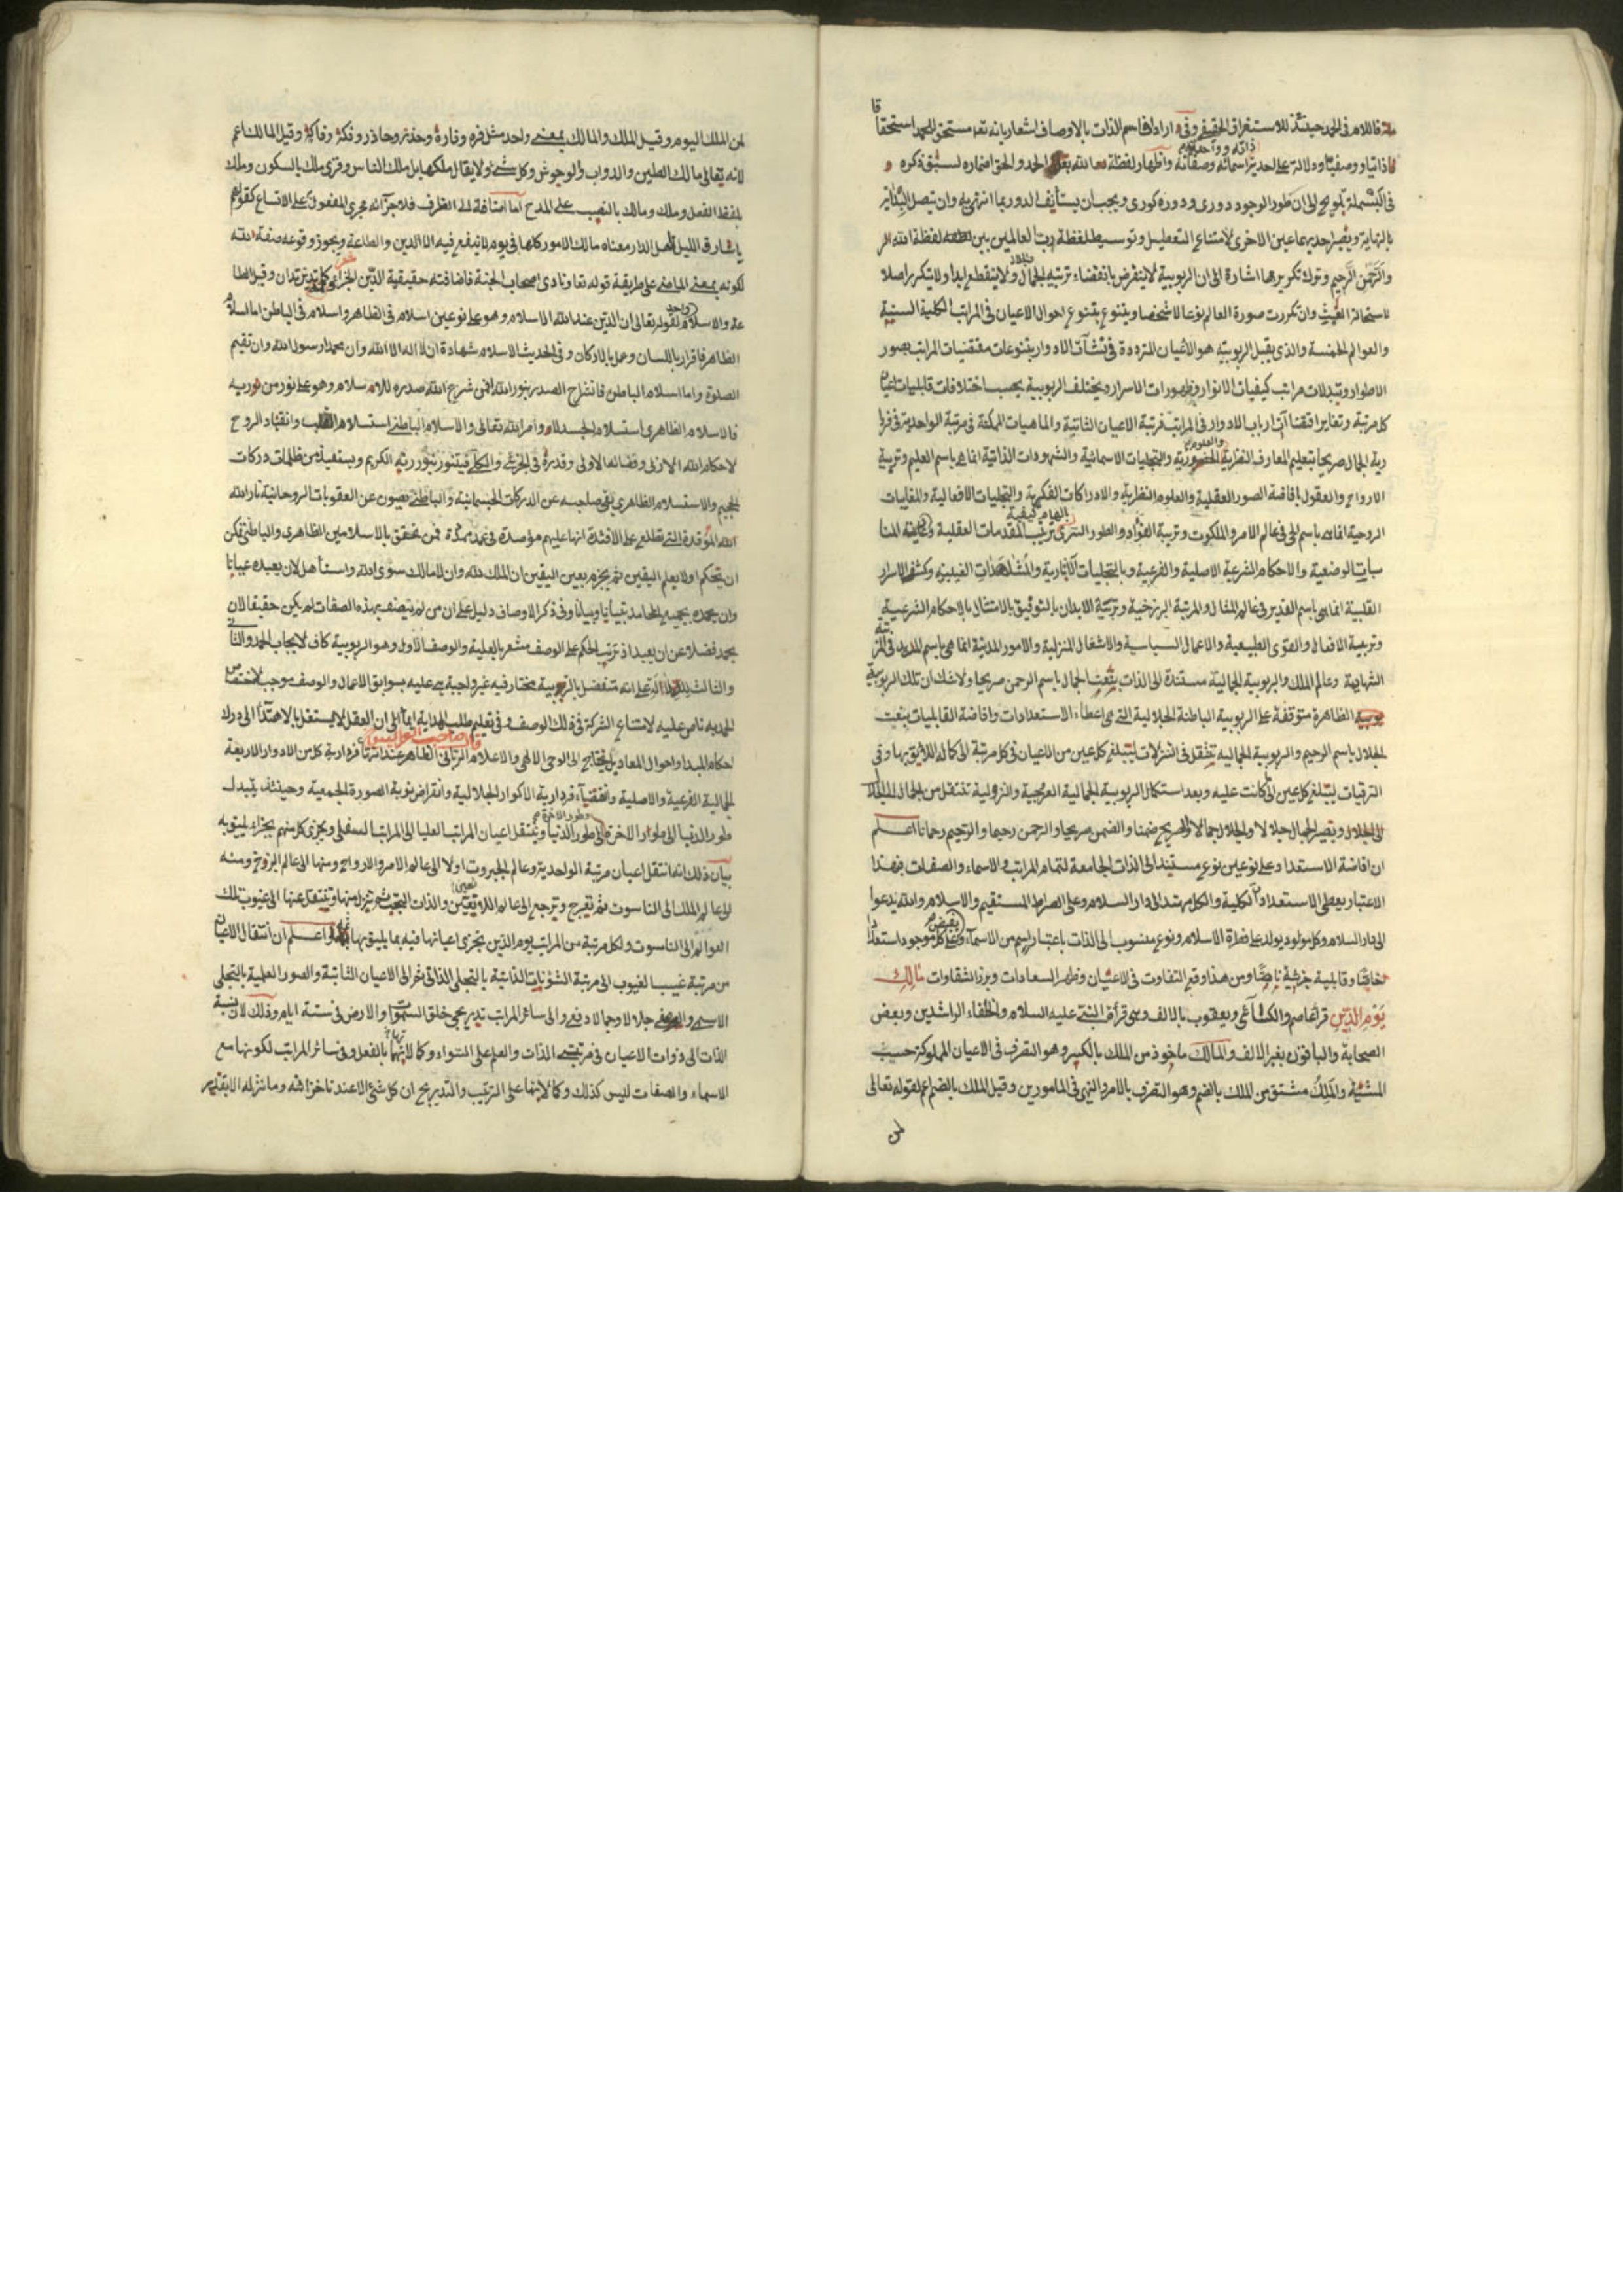 فاللام في الحمد حينئذ للاستغراق الحقيقي وفي ايراد اسم الذات بالاوصاف اشعار بانه تعالى مستحق للحمد استحقاقا
ذاتيا ووصفيا ودلالة على احدية اسمائه وصفاته واظهار لفظة الله بعد الحمد والحق اضماره لسبق ذكره
في البسملة تلويح الى ان طور الوجود دوري ودوره كوري ويجب ان يستأنف الدور بما انتهى به وان يتصل البداية
بالنهاية ويصير احديهما عين الاخرى لامتناع التعطيل وتوسيط لفظة رب العالمين بين لفظة الله
والرحمن الرحيم وترك تكريرهما اشارة الى ان الربوبية لا ينقرض بانقضاء تربية الجمال ولا ينقطع ابدا ولا يتكرر اصلا
لاستحالة العبث وان تكررت صورة العالم نوعا لا شخصا ويتنوع بتنوع احوال الاعيان في المراتب الكلية الستية
والعوالم الخمسة والذي يقبل الربوبية هو الاعيان المترددة في نشآت الادوار بتنوعات مقتضيات المراتب بصور
الاطوار وتبدلات مراتب كيفيات الانوار وظهورات الاسرار ويختلف الربوبية بحسب اختلافات قابليات اعيان
كل مرتبة وتغاير ارباب الادوار في المراتب فرتبة الاعيان الثابتة والماهيات الممكنة في مرتبة الواحدية
الجمال صريحا بتعليم المعارف النظرية والعلوم الحضورية والتجليات الاسمائية والشهودات الذاتية انما هي باسم العليم وتربية
الارواح والعقول بافاضة الصور العقلية والعلوم النظرية والادراكات الفكرية والتجليات الافعالية
الروحية انما هي باسم الحي في عالم الامر والملكوت وتربية الفؤاد والطور السري بالهام كيفية ترتيب المقدمات العقلية
الوضعية والاحكام الشرعية الاصلية والفرعية وبالتجليات الآثارية والمشاهدات الغيبية وكشف الاسرار
القلبية انما هي باسم القدير في عالم المثال والمرتبة البرزخية وتربية الابدان بالتوفيق بالاشتغال بالاحكام الشرعية
وتربية الافعال والقوى الطبيعية والاعمال السياسية والاشغال المنزلية والامور المدنية انما هي باسم المريد في المرتبة
الشهادية وعالم الملك والربوبية الجمالية مستندة الى الذات بنعت الجمال باسم الرحمن صريحا ولا شك ان تلك الربوبية
الظاهرة متوقفة على الربوبية الباطنة الجلالية التي هي اعطاء الاستعدادات وافاضة القابليات بنعت
الجلال باسم الرحيم والربوبية الجمالية تنتقل في التنزلات ليتبلغ كل عين من الاعيان في كل مرتبة الى كماله اللائق بها وفي
الترقيات ليتبلغ كل عين الى ما كانت عليه وبعد استكمال الربوبية الجمالية العروجية والنزولية تنتقل من الجمال
الى الجلال ويصير الجمال جلالا والجلال جمالا والصريح ضمنا والضمن صريحا والرحمن رحيما والرحيم رحمانا اعلم
ان افاضة الاستعداد على نوعين نوع مستند الى الذات الجامعة لتمام المراتب والاسماء والصفات فهذا
الاعتبار يعطي الاستعداد الكلية والكل مهتد الى دار السلام وعلى الصراط المستقيم والاسلام والله يدعوا
الى دار السلام وكل مولود يولد على فطرة الاسلام ونوع منسوب الى الذات باعتبار اسم من الاسماء وتقتضي على كل موجود استعدادا
خاصا وقابلية جزئية ناقصا ومن هذا وقع التفاوت في الاعيان وظهر السعادات وبرز الشقاوات مالك
يوم الدين قرأ عاصم والكسائي ويعقوب بالالف وهي قرأة النبي عليه السلام والخلفاء الراشدين وبعض
الصحابة والباقون بغير الالف والمالك ماخوذ من الملك بالكسر وهو التصرف في الاعيان المملوكة حسب
المشية والملك مشتق من الملك بالضم وهو التصرف بالامر والنهي في المامورين وقيل الملك بالضم اعم لقوله تعالى
لمن
لمن الملك اليوم وقيل الملك والمالك بمعنى واحد مثل فره وفاره وحذر وحاذر وفكه وفاكه وقيل المالك اعم
لانه يقال مالك الطين والدواب والوحوش وكل شئ ولا يقال ملكها بل ملك الناس وقرئ ملك بالسكون وملك
بلفظ الفعل وملك ومالك بالنصب على المدح اما اضافة الى الظرف فلاجرآئه مجرى المفعول على الاتساع كقولهم
يا سارق الليل اهل الدار معناه مالك الامور كلها في يوم لا ينفع فيه الا الدين والطاعة ويجوز وقوعه صفة لله
لكونه بمعنى الماضي على طريقة قوله تعا ونادى اصحاب الجنة فاضافته حقيقية الدين الجزاء كما تدين تدان وقيل الطا
عة والاسلام لقوله تعالى ان الدين عند الله الاسلام وهو على نوعين اسلام في الظاهر واسلام في الباطن اما اسلام
الظاهر فاقرار باللسان وعمل بالاركان وفي الحديث الاسلام شهادة ان لا اله الا الله وان محمدا رسول الله وان تقيم
الصلوة واما اسلام الباطن فانشراح الصدر بنور الله افمن شرح الله صدره للاسلام وهو على نور من ربه
فالاسلام الظاهري استسلام الجسد لاوامر الله تعالى والاسلام الباطني استسلام القلب وانقياد الروح
لاحكام الله الازلي وقضائه الاولى وقدره في الجزئي والكلي فيتنور بنور ربه الكريم ويستفيد من ظلمات دركات
الجحيم والاستسلام الظاهري يقي صاحبه عن الدركات الجسمانية والباطني يصون عن العقوبات الروحانية نار الله
الموقدة التي تطلع على الافئدة انها عليهم مؤصدة في عمد ممددة فمن تحقق بالاسلامين الظاهري والباطني تمكن
ان يحكم اولا بعلم اليقين ثم يجزم بعين اليقين ان الملك لله وان لا مالك سوى الله واستأهل لان يعبده عيانا
وان يحمده بجميع المحامد تبيانا وبيانا وفي ذكر الاوصاف دليل على ان من لم يتصف بهذه الصفات لم يكن حقيقا لان
يحمد فضلا عن ان يعبد اذ ترتب الحكم على الوصف مشعر بالعلية والوصف الاول وهو الربوبية كاف لايجاب الحمد والثاني
والثالث يدلان على انه متفضل بالربوبية مختار فيه غير واجبة هي عليه بسوابق الاعمال والوصف موجب لاختصاص
الحمد به ناص عليه لامتناع الشركة في ذلك الوصف وفي تعليم طلب الهداية ايماء الى ان العقل لا يستقل بالاهتداء الى درك
احكام المبدا واحوال المعاد بل يحتاج الى الوحي الالهي والاعلام الرباني الظاهر عند انتهاء فردارية كل من الادوار الاربعة
الجمالية الفرعية والاصلية وانقضاء فردارية الاكوار الجلالية وانقراض نوبة الصورة الجمعية وحينئذ يتبدل
طور الدنيا الى طور الاخرة وطور الاخرة الى طور الدنيا وينتقل اعيان المراتب العليا الى المراتب السفلى ويجزى كل منهم بجزاء يليق به
بيان ذلك انما تنتقل اعيان مرتبة الواحدية وعالم الجبروت اولا الى عالم الامر والارواح ومنها الى عالم البرزخ ومنه
الى عالم الملك الى الناسوت ثم تعرج وترجع الى عالم اللاتعين والذات البحت ثم تنزل منها وتنتقل عنها الى غيوب تلك
العوالم الى الناسوت ولكل مرتبة من المراتب يوم الدين تجزى اعيانها فيه بما يليق بها واعلم ان انتقال الاعيان
من مرتبة غيب الغيوب الى مرتبة الشئونات الذاتية بالتجلي الذاتي ثم الى الاعيان الثابتة والصور العلمية بالتجلي
الاسمي جلالا وجمالا دفعي والى سائر المراتب تدريجي خلق السموات والارض في ستة ايام وذلك لان نسبة
الذات الى ذوات الاعيان في مرتبتي الذات والعلم على السواء وكمالاتها بالفعل وفي سائر المراتب لكونها مع
الاسماء والصفات ليس كذلك وكمالاتها على الترتيب والتدريج ان كل شئ الا عندنا خزائنه وما ننزله الا بقدر